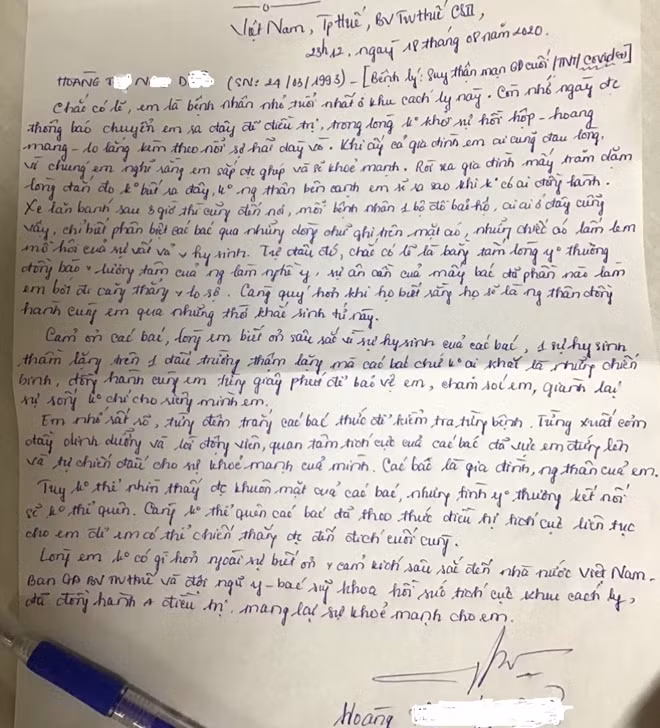 Việt Nam, Tp Huế, BV TW Huế CSII,
23h12, ngày 18 tháng 08 năm 2020.
HOÀNG T N D (SN: 24/03/1993) - [Bệnh lý: Suy thận mạn GĐ cuối /TNT/ covid(+)]
Chắc có lẽ, em là bệnh nhân nhỏ tuổi nhất ở khu cách ly này. Còn nhớ ngày đc
thông báo chuyển em ra đây để điều trị, trong lòng k° khỏi sự hồi hộp - hoang
mang - lo lắng kèm theo nỗi sợ hãi dày vò. Khi ấy cả gia đình em ai cũng đau lòng,
vì chúng em nghĩ rằng em sắp đc ghép và sẽ khoẻ mạnh. Rồi xa gia đình mấy trăm dặm
lòng dặn do k° biết ra đây, k° ng thân bên cạnh em sẽ ra sao khi k° có ai đồng hành.
Xe lăn bánh sau 8 giờ thì cũng đến nơi, mỗi bệnh nhân 1 bộ đồ bảo hộ, ai ai ở đây cũng
vậy, chỉ biết phân biệt các bác qua những dòng chữ ghi trên mặt áo, những chiếc áo lấm lem
mồ hôi của sự vất vả + hy sinh. Từ đâu đó, chắc có lẽ là bằng tấm lòng y° thương
đồng bào + lương tâm của ng làm nghề y, sự ân cần của mấy bác đã phần nào làm
em bớt đi căng thẳng + lo sợ. Càng quý hơn khi họ biết rằng họ sẽ là ng thân đồng
hành cùng em qua những thời khắc sinh tử này.
Cảm ơn các bác, lòng em biết ơn sâu sắc vì sự hy sinh của các bác, 1 sự hy sinh
thầm lặng trên 1 đấu trường thầm lặng mà các bác chứ k° ai khác là những chiến
binh, đồng hành cùng em từng giây phút để bảo vệ em, chăm sóc em, giành lại
sự sống k° chỉ cho riêng mình em.
Em nhớ rất rõ, từng đêm trắng các bác thức để kiểm tra từng bệnh. Từng xuất cơm
đầy dinh dưỡng và lời động viên, quan tâm tích cực của các bác đã vực em đứng lên
và tự chiến đấu cho sự khoẻ mạnh của mình. Các bác là gia đình, ng thân của em.
Tuy k° thể nhìn thấy đc khuôn mặt của các bác, nhưng tình y° thương kết nối
sẽ k° thể quên. Càng k° thể quên các bác đã theo thức điều trị tích cực liên tục
cho em để em có thể chiến thắng đc đến đích cuối cùng.
Lòng em k° có gì hơn ngoài sự biết ơn + cảm kích sâu sắc đến nhà nước Việt Nam -
Ban GĐ BV TW Huế và đội ngũ y - bác sỹ khoa hồi sức tích cực khu cách ly,
đã đồng hành + điều trị, mang lại sự khoẻ mạnh cho em.
Hoàng